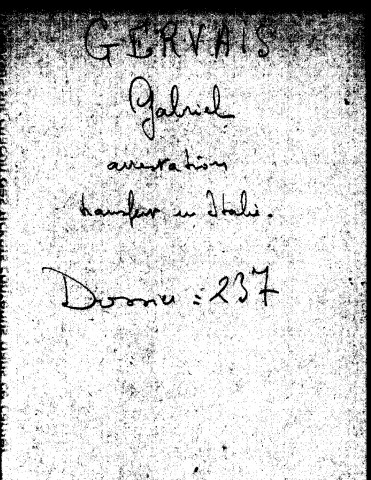 GERVAIS
Gabriel
arrestation
transfert en Italie.
Dossier : 237